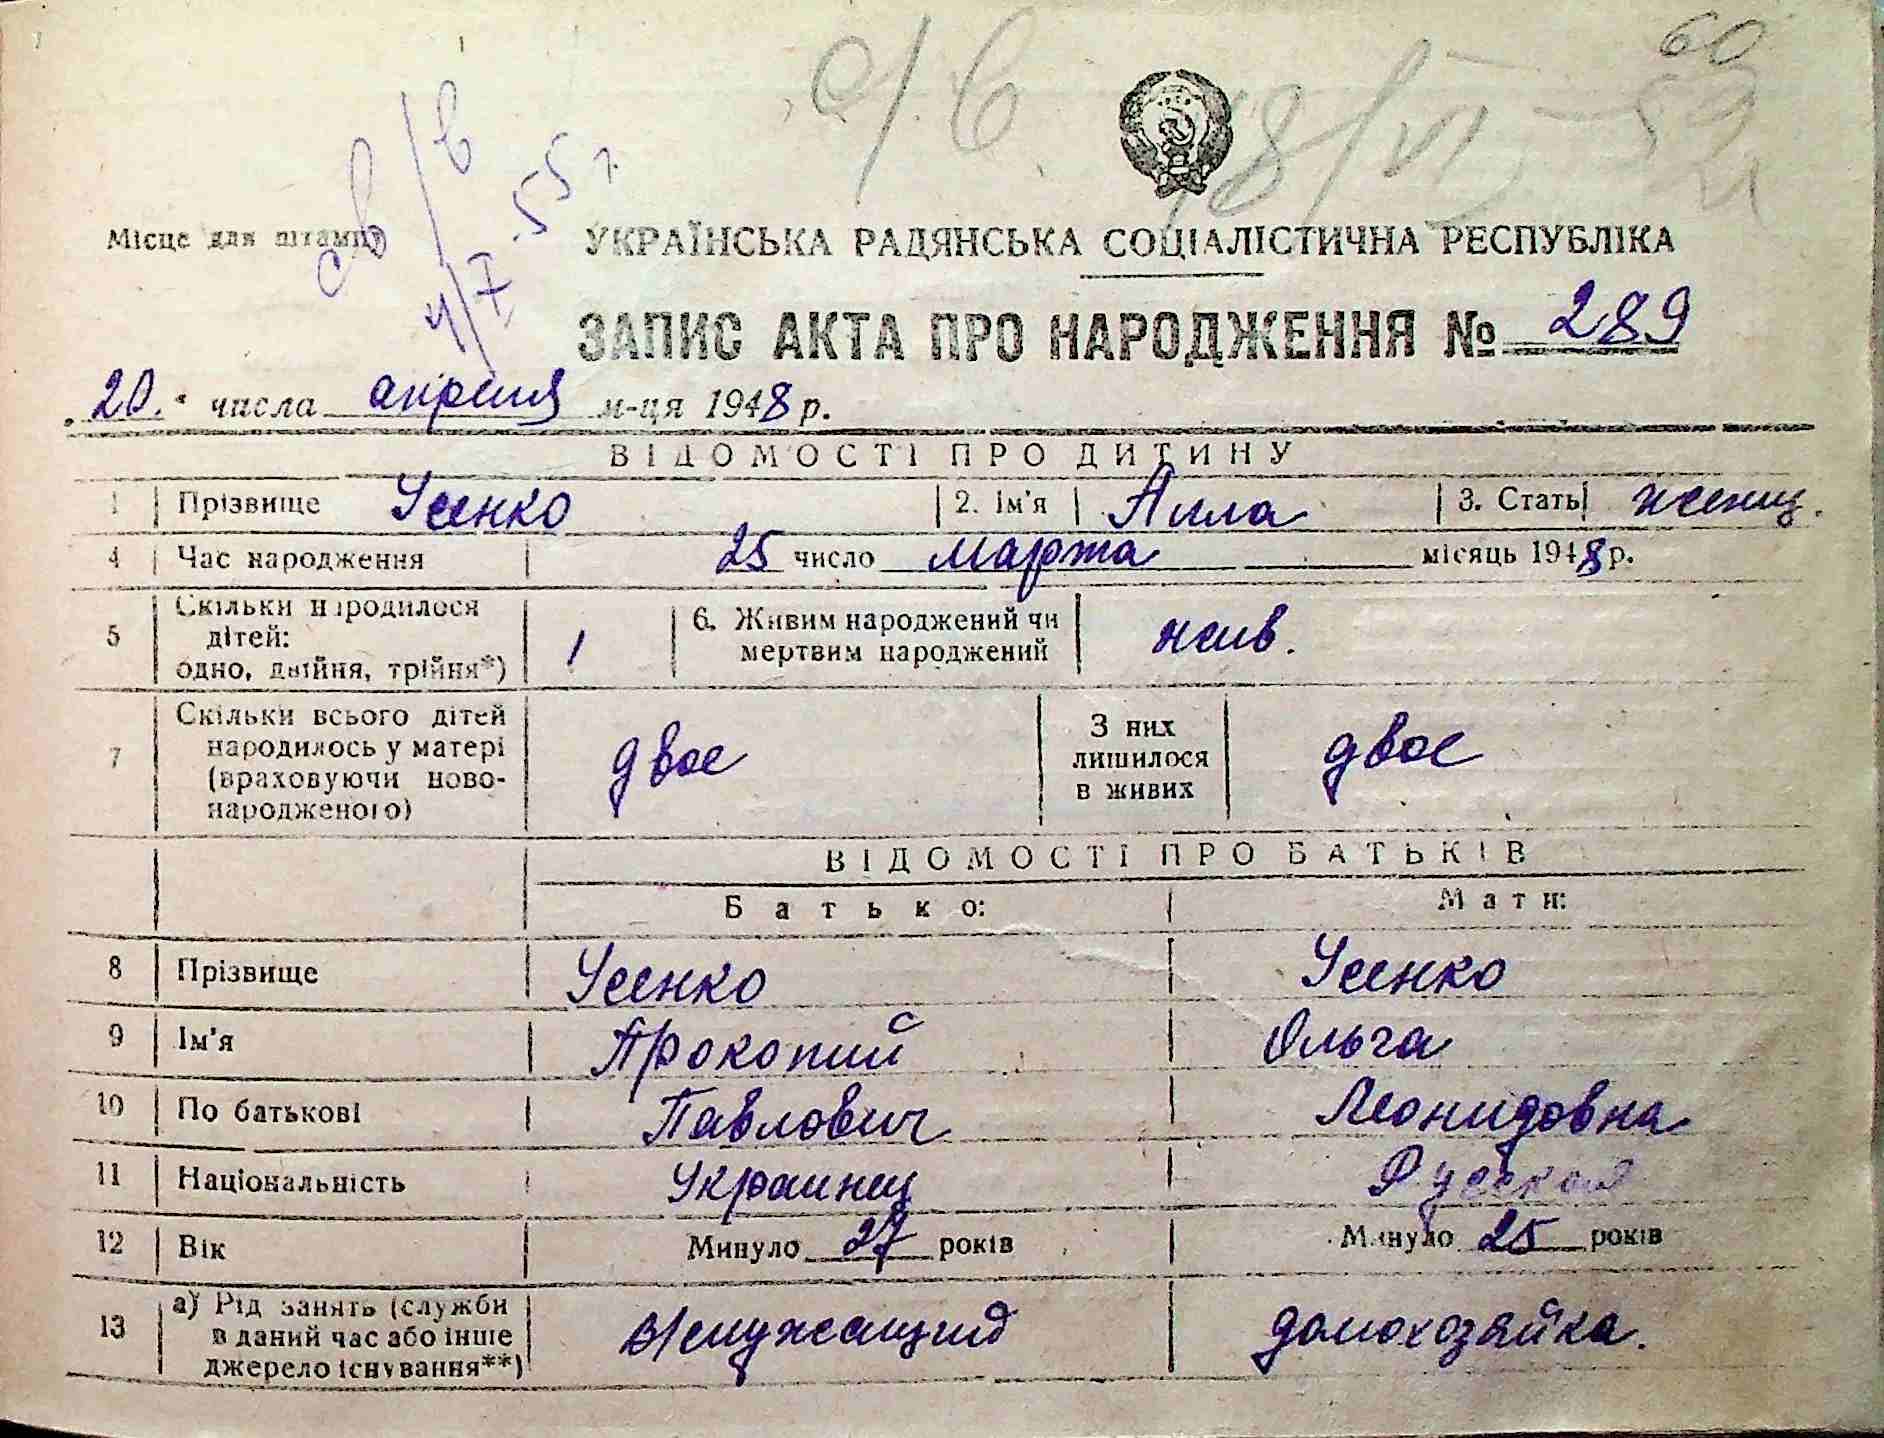 60
с/в 18/VI – 52 г
св/в
4/7. 55 г.
Місце для штампу
УКРАЇНСЬКА РАДЯНСЬКА СОЦІАЛІСТИЧНА РЕСПУБЛІКА
ЗАПИС АКТА ПРО НАРОДЖЕННЯ № 289
„20.“ числа апреля м-ця 1948 р.
ВІДОМОСТІ ПРО ДИТИНУ
1 Прізвище Усенко 2. Ім'я Алла 3. Стать женщ.
4 Час народження 25 число марта місяць 1948 р.
5 Скільки народилося
дітей:
одно, двійня, трійня*) 1
6. Живим народжений чи
мертвим народжений жив.
7 Скільки всього дітей
народилось у матері
(враховуючи ново-
народженого) двое
З них
лишилося
в живих двое
ВІДОМОСТІ ПРО БАТЬКІВ
Батько: Мати:
8 Прізвище Усенко Усенко
9 Ім'я Прокопий Ольга
10 По батькові Павлович Леонидовна
11 Національність Украинец Русская
12 Вік Минуло 27 років Минуло 25 років
13 а) Рід занять (служби
в даний час або інше
джерело існування**) в/служащий домохозяйка.